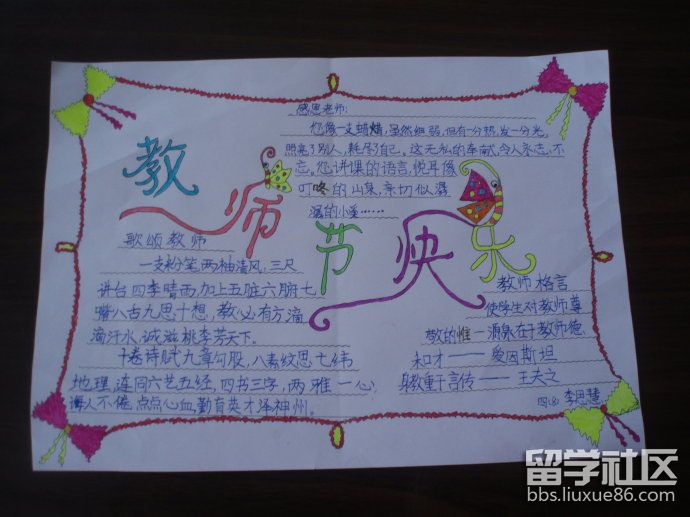 教师节快乐
感恩老师：
您像一支蜡烛，虽然细弱，但有一分热，发一分光，
照亮了别人，耗尽了自己。这无私的奉献，令人永志不
忘。您讲课的语言，悦耳像
叮咚的山泉，亲切似潺
潺的小溪……
歌颂教师
一支粉笔两袖清风，三尺
讲台四季晴雨，加上五脏六腑七
嘴八舌九思十想，教必有方滴
滴汗水，诚滋桃李芳天下。
十卷诗赋九章勾股，八索纹思七纬
地理，连同六艺五经，四书三字，两雅一心，
诲人不倦，点点心血，勤育英才泽神州。
教师格言
使学生对教师尊
敬的惟一源泉在于教师德
和才——爱因斯坦
身教重于言传——王夫之
李思慧
留学社区
bbs.liuxue86.com